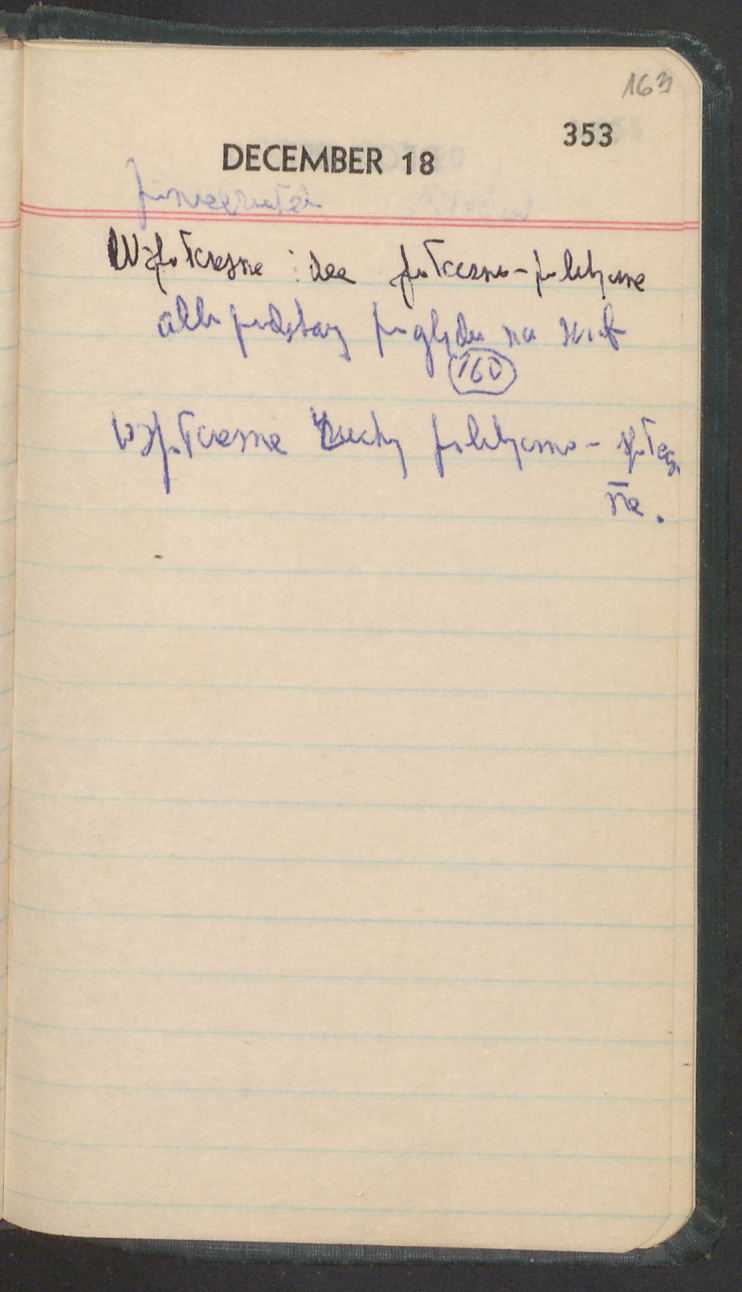 163
353
DECEMBER 18
poniedziałek
Współczesne idee społeczno-polityczne
albo podstawy poglądu na świat
160
Współczesne Ruchy polityczno-społecz-
ne.